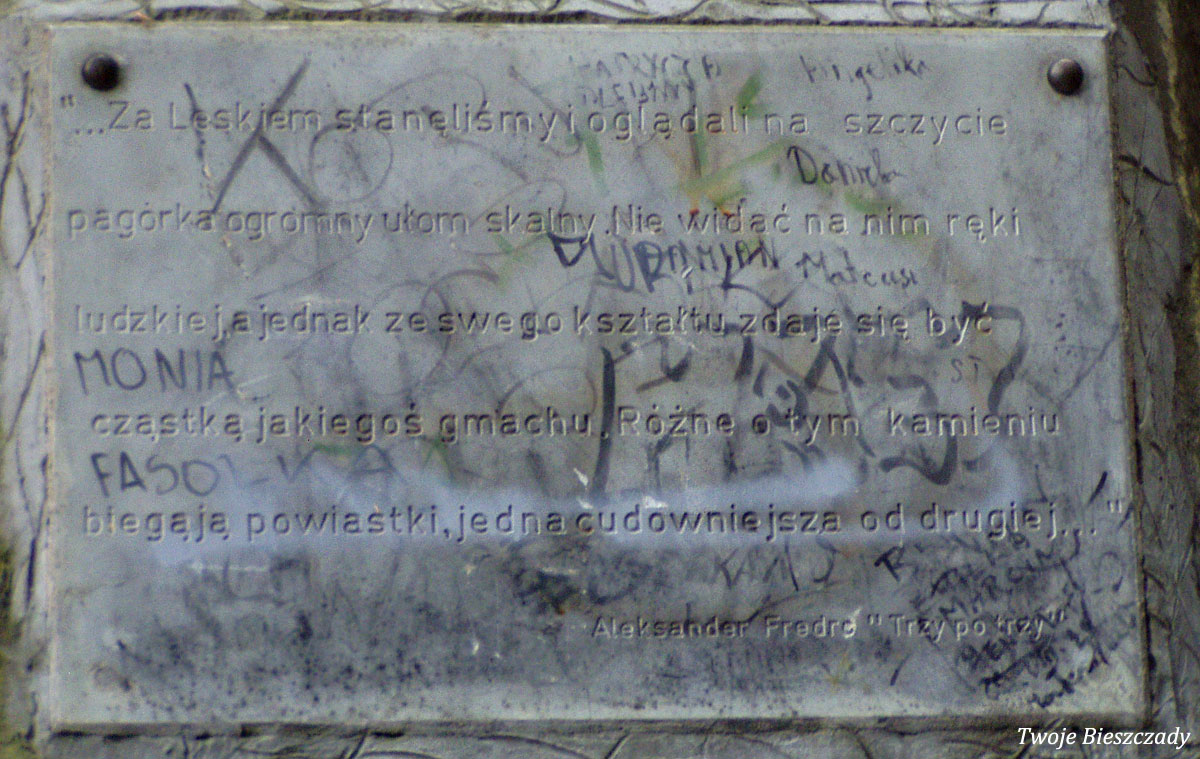 Angelika
"...Za Leskiem stanęliśmy i oglądali na szczycie
Daniela
pagórka ogromny ułom skalny. Nie widać na nim ręki
DAMIAN Mateusz
ludzkiej, a jednak ze swego kształtu zdaje się być
MONIA ST
cząstką jakiegoś gmachu. Różne o tym kamieniu
FASOLKA
biegają powiastki, jedna cudowniejsza od drugiej..."
Aleksander Fredro "Trzy po trzy"
Twoje Bieszczady